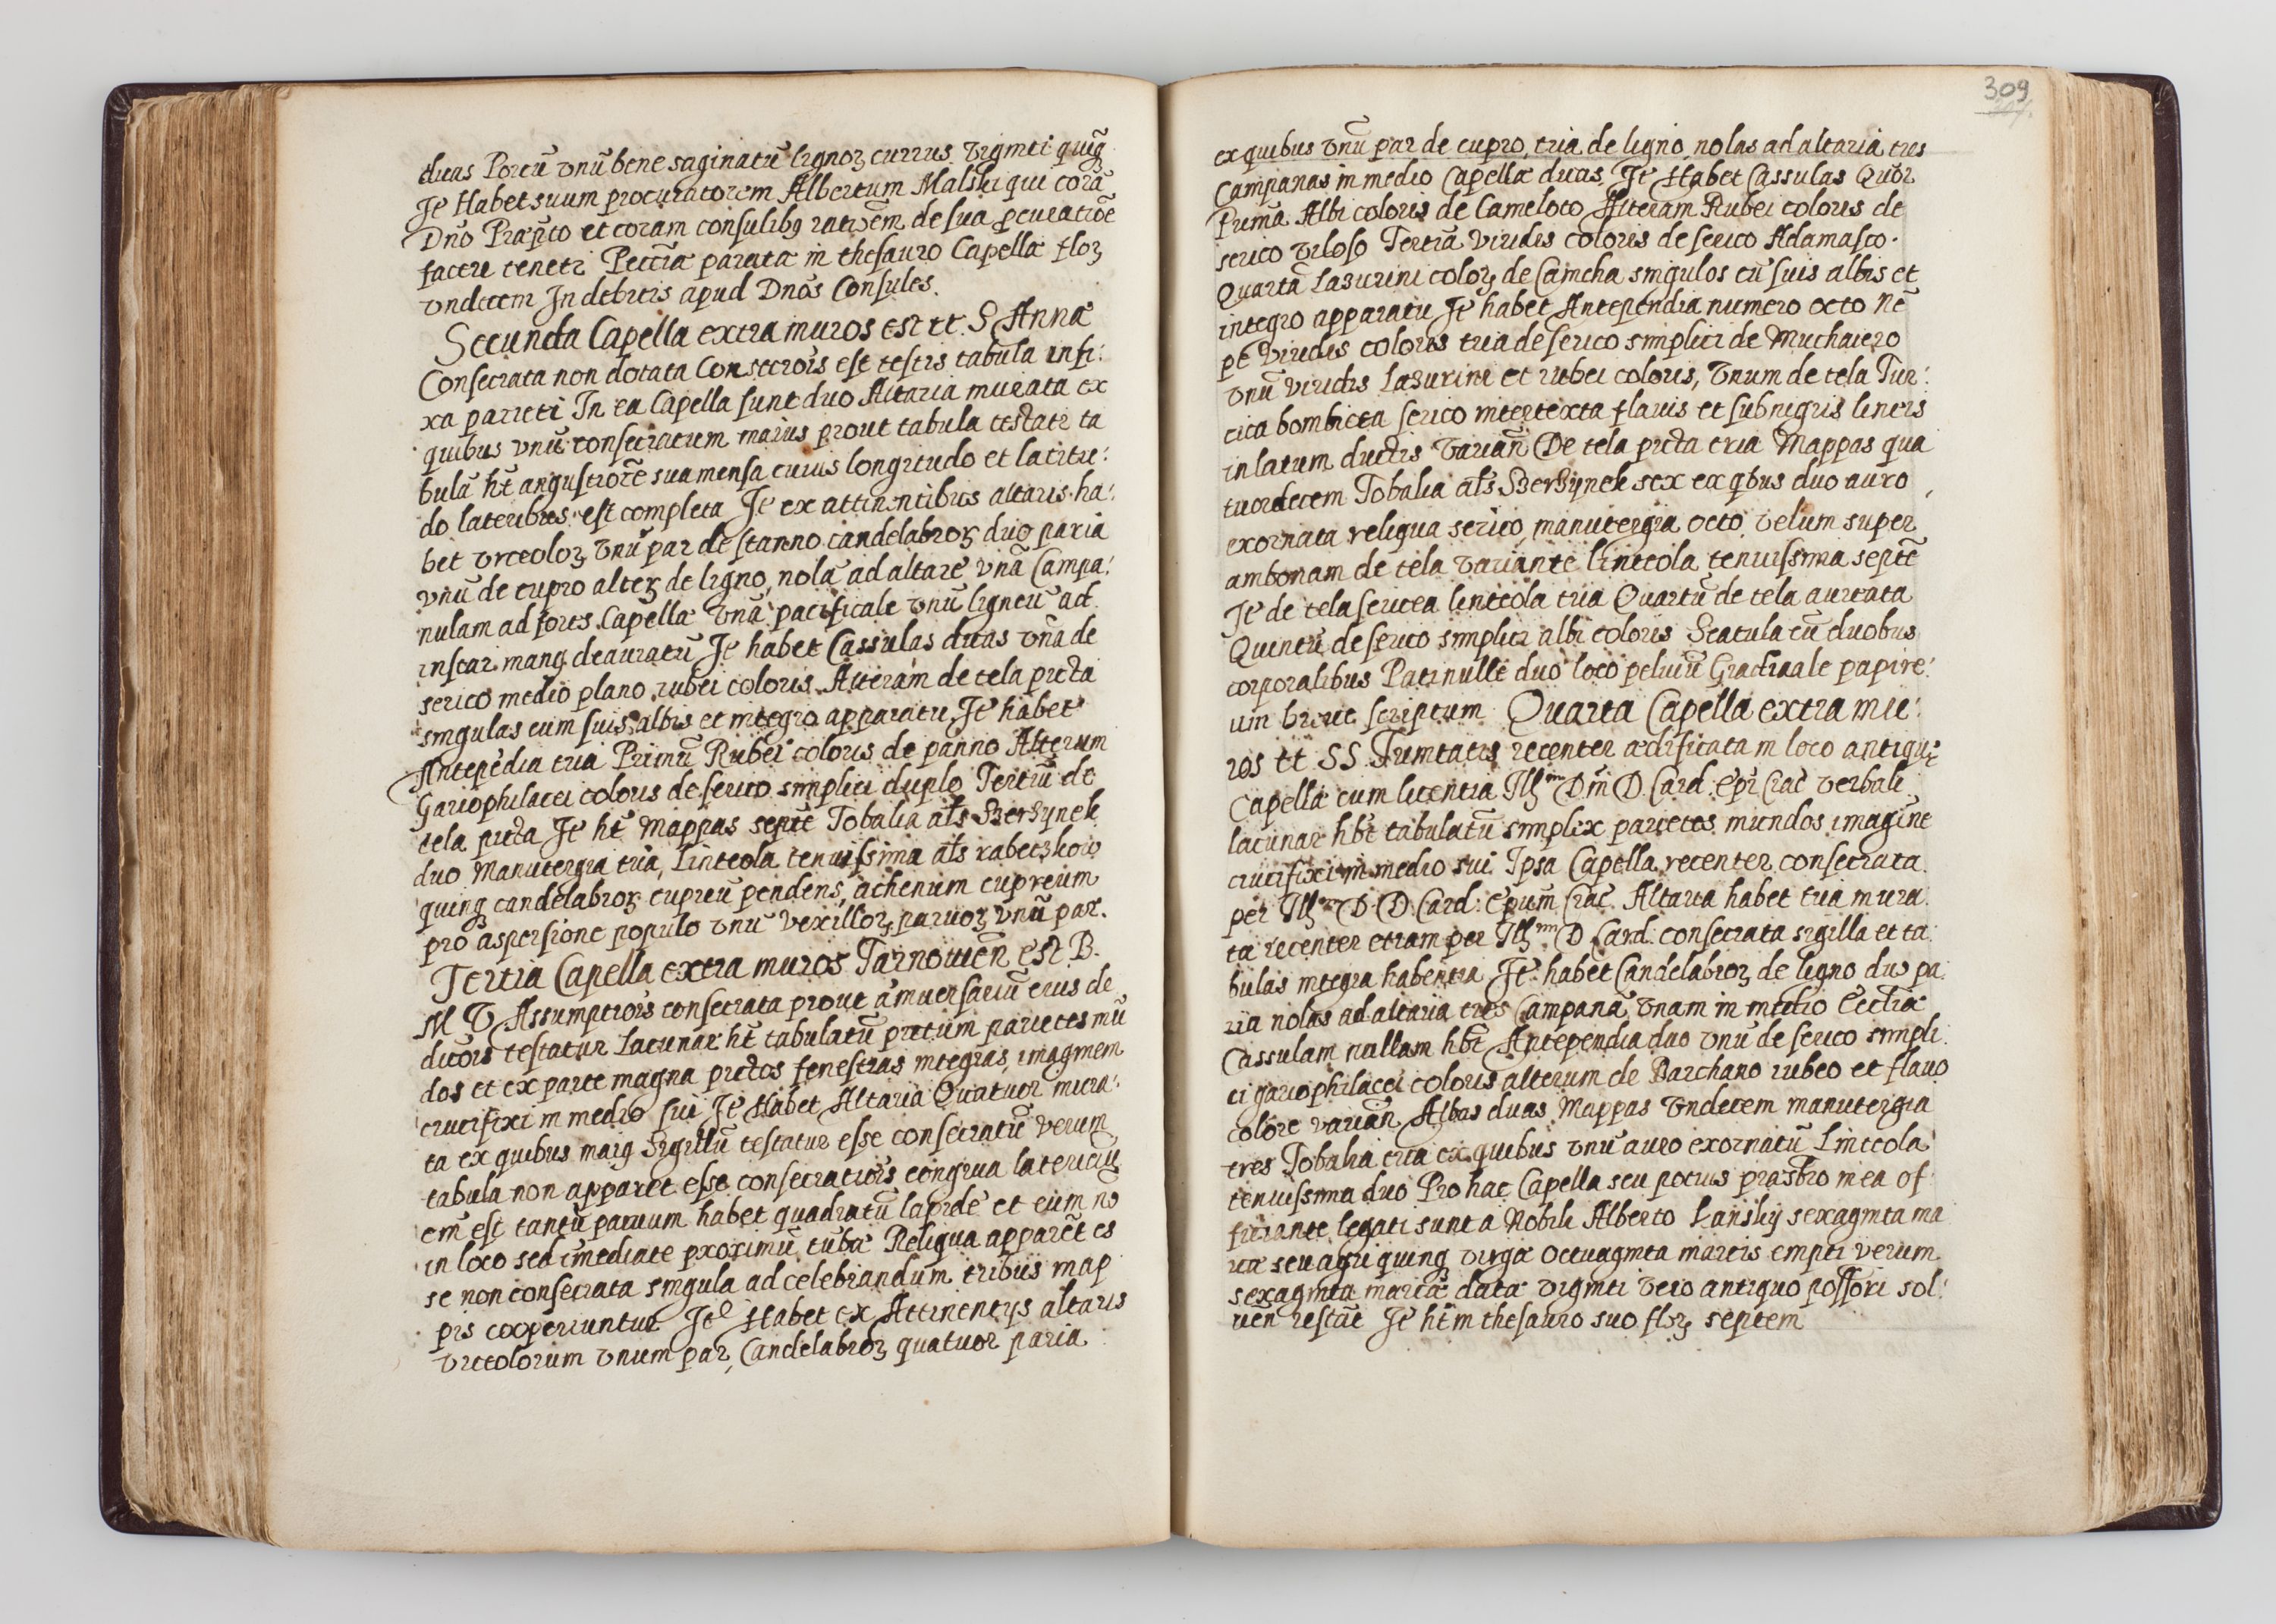 duas Porcū vnū bene saginatū lignoʒ currus viginti quinq̃
Itē Habet suum procuratorem Albertum Malski qui corā
Dño Præpto et coram consulibꝫ ratioēm de sua pcuratiōē
facere tenetr Peccīa parata in thesauro Capellæ floʒ
vndecem In debitis apud Dnōs Consules.
Secunda Capella extra muros est tt. S Annæ
Consecrata non dotata Consecrōis est testis tabula infi:
xa parieti In ea Capella sunt duo Altaria murata ex
quibus vnū consecratum maius prout tabula testatr ta
bulā hēt angustiorē sua mensa cuius longitudo et latitu:
do lateribus est completa Itē ex attinentibus altaris ha:
bet vrceoloʒ vnū par de stanno candelabroʒ duo paria
vnū de cupro alteʒ de ligno, nolā ad altare vnā Campa:
nulam ad fores Capellæ vnā pacificale vnū ligneū ad
instar mang deauratū Itē habet Cassulas duas vnā de
serico medio plano rubei coloris Alteram de tela picta
singulas cum suis albis et integro apparatu Itē habet
Antepēdia tria Primū Rubei coloris de panno Alterum
Gariophilacei coloris de serico simplici duplo Tertiū de
tela picta Itē hēt Mappas septē Tobalia als Berzynek
duo Manutergia tria, Linteola tenuissima als rabetzkow
quinq candelabroʒ cupreū pendens, achenum cupreum
pro aspersione populo vnū vexilloʒ paruoʒ vnū par.
Tertia Capella extra muros Tarnouien̄ est B.
M V Assumptiōis consecrata prout a͞niuersariū eius de
dicōis testatur Lacunar hēt tabulatū pictum parietes mū
dos et ex parte magna pictos fenestras integras, imaginem
crucifixi in medio sui Itē Habet Altaria Quatuor mura:
ta ex quibus maiꝫ Sigillū testatur esse consecratū verum
tabula non apparet esse consecratiōis congrua latericiū
em̄ est tantū paruum habet quadratū lapidē et eum nō
in loco sed im̄ediate proximū tubæ Reliqua apparēt es
se non consecrata singula ad celebrandum tribus map
pis cooperiuntur Itē Habet ex Attinentys altaris
vrceolorum vnum par, Candelabroʒ quatuor paria
309
ex quibus vnū par de cupro, tria de ligno, nolas ad altaria tres
Campanas in medio Capellæ duas, Itē Habet Cassulas Quōr
Primā Albi coloris de Cameloto Alteram Rubei coloris de
serico viloso Tertiā viridis coloris de serico Adamasco.
Quartā Lasurini coloʒ de Camcha singulos cū suis albis et
integro apparatu Itē habet Antependia numero octo Nē
pē viridis coloris tria de serico simplici de Muchaiero
vnū viridis Lasurini et rubei coloris, vnum de tela Tur:
cica bombicea serico intertexta flauis et subnigris lineis
in latum ductis varian̄ De tela picta tria Mappas qua
tuordecem Tobalia als Berzynek sex ex qbus duo auro
exornata reliqua serico, manutergia octo, velum super
ambonam de tela variante linteola tenuissima septē
Itē de tela sericea linteola tria Quartū de tela aurata
Quintū de serico simplici albi coloris Scatula cū duobus
corporalibus Patinulle duo loco peluiū Graduale papire:
um breue scriptum Quarta Capella extra mu:
ros tt SS Trinitatis recenter ædificata in loco antiquæ
Capellæ cum licentia Illᵐⁱ Dn̄i D. Card. Epī Crac̄ verbali
lacunar hbēt tabulatū simplex parietes mundos imaginē
crucifixi in medio sui Ipsa Capella recenter consecrata
per Illᵐ D. D. Card: Epum̄ Crac̄. Altaria habet tria mura
ta recenter etiam per Illᵐᵘᵐ D Card: consecrata sigilla et ta:
bulas integra habentia Itē habet Candelabroʒ de ligno duo pa
ria nolas ad altaria tres Campanā vnam in medio Ecclīæ
Cassulam nullam hbēt Antependia duo vnū de serico simpli
ci gariophilacei coloris alterum de Barchano rubeo et flauo
colore varian̄ Albas duas Mappas vndecem manutergia
tres Tobalia tria ex quibus vnū auro exornatū Linteola
tenuissima duo Pro hac Capella seu potius præsbro in ea of
ficiante legati sunt a Nobili Alberto Lanskij sexaginta ma
næ seu agri quinq virgæ octuaginta marcis empti verum
sexaginta marcæ datæ viginti vero antiquo possōri sol:
uen̄ restāt Itē hēt in thesauro suo floʒ septem